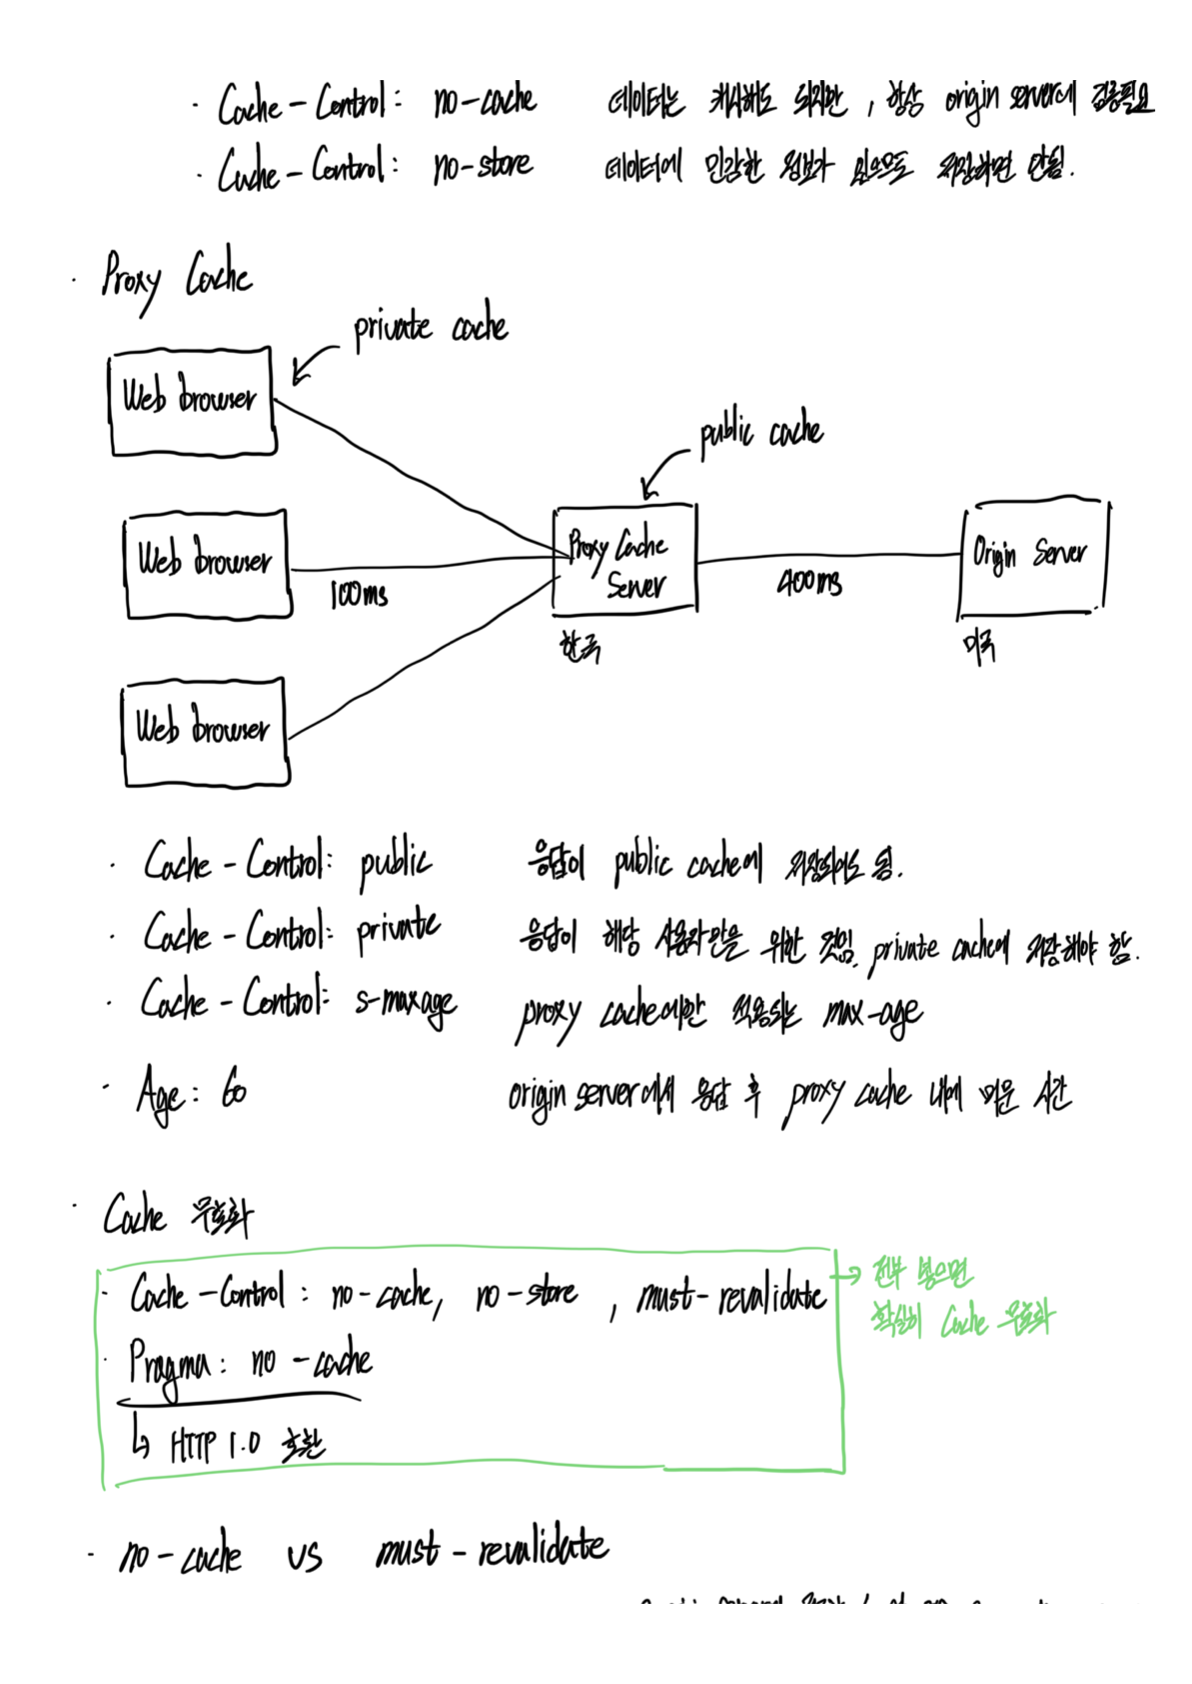 · Cache-Control: no-cache 데이터는 캐시해도 되지만, 항상 origin server에 검증필요
· Cache-Control: no-store 데이터에 민감한 정보가 있으므로 저장하면 안됨.
· Proxy Cache
private cache
Web browser
public cache
Web browser
100ms
Proxy Cache
Server
400ms
Origin Server
한국
미국
Web browser
· Cache-Control: public 응답이 public cache에 저장되어도 됨.
· Cache-Control: private 응답이 해당 사용자만을 위한 것임. private cache에 저장해야 함.
· Cache-Control: s-maxage proxy cache에만 적용되는 max-age
· Age: 60 origin server에서 응답 후 proxy cache 내에 머문 시간
· Cache 무효화
· Cache-Control: no-cache, no-store, must-revalidate
→ 전부 넣으면
확실히 Cache 무효화
· Pragma: no-cache
↳ HTTP 1.0 호환
- no-cache vs must-revalidate